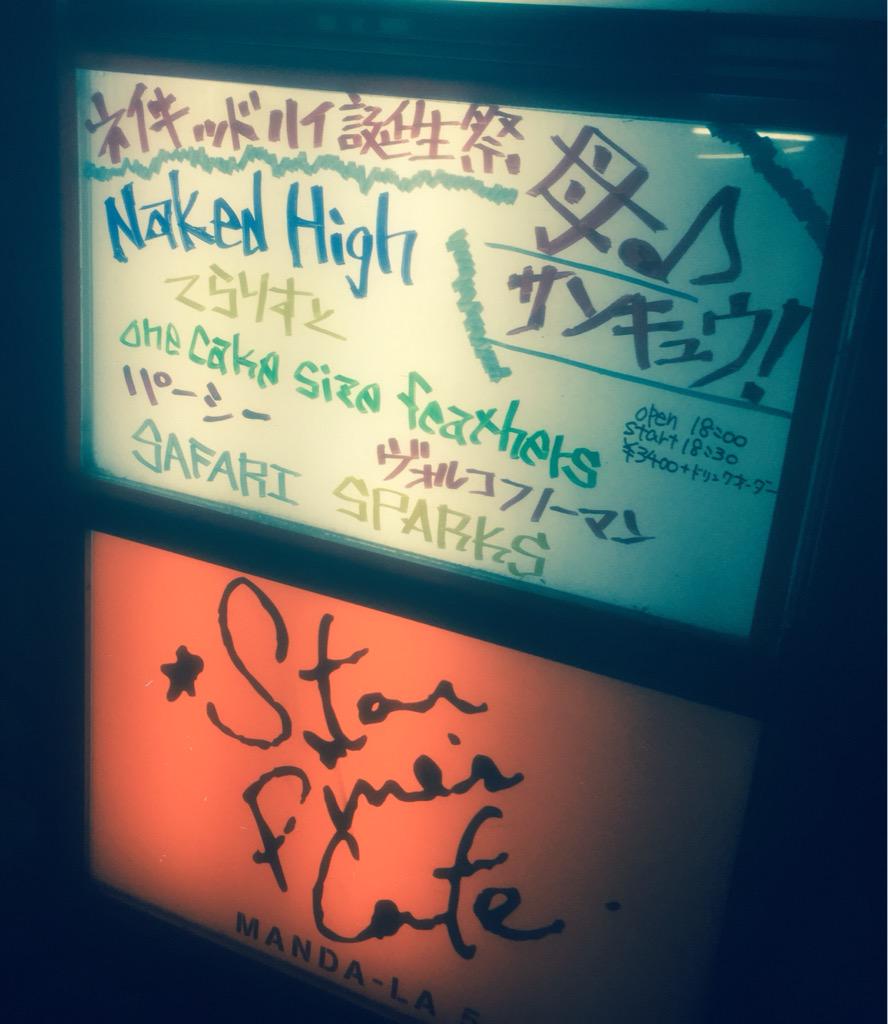 ネイキッドハイ誕生祭
母♪
サンキュウ!
Naked High
てらりすと
one cake size feathers
パーシー
SAFARI
ヴォルコフノーマン
SPARKS
open 18:00
start 18:30
¥3400+ドリンクオーダー
★Star
Pine's
Cafe
MANDA-LA 5